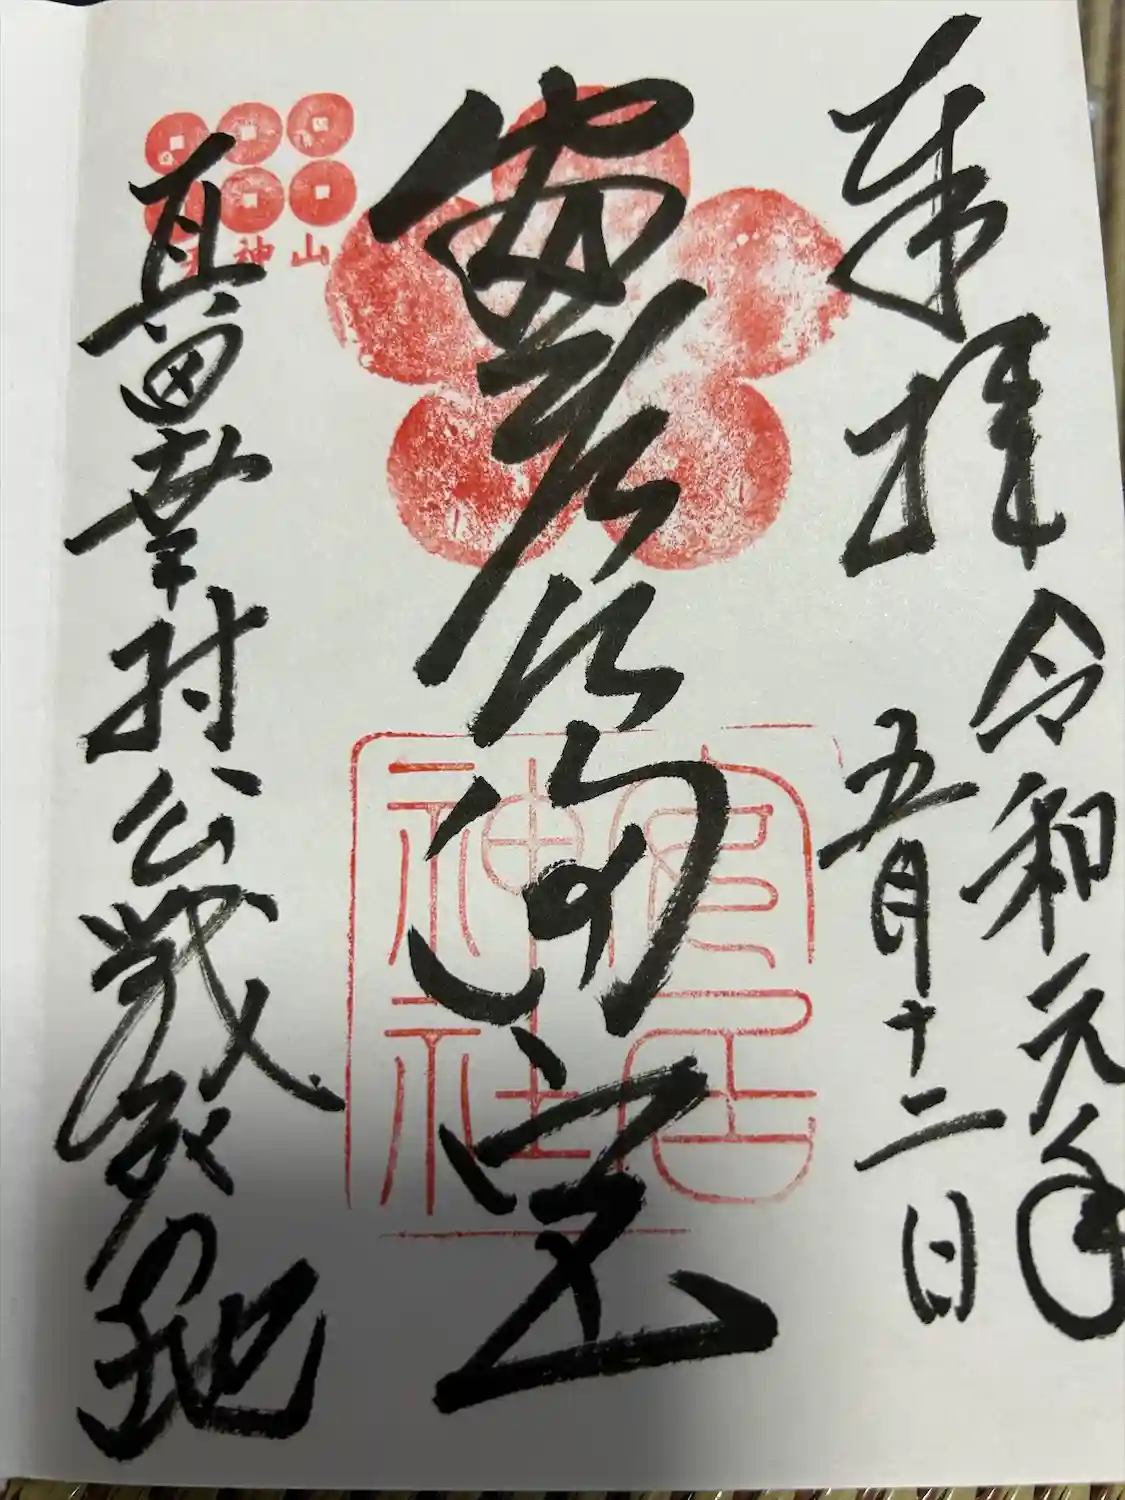 奉拝
令和元年
五月十二日
安居天満宮
安居神社
天神山
真田幸村公戦死地